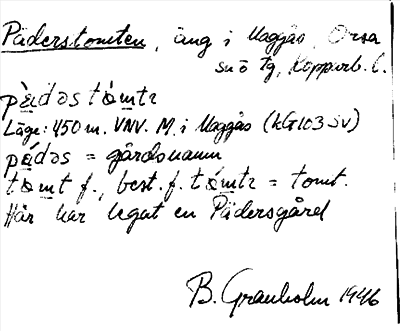 Päderstomten, äng i Maggås, Orsa
sn o tg, Kopparb. l.
pä̀dəs tòmtɛ
Läge: 450 m. VNV. M. i Maggås (kG103 SV)
pä́dəs = gårdsnamn
tòmt f., best. f. tòmtɛ = tomt.
Här har legat en Pädersgård
B. Granholm 1946